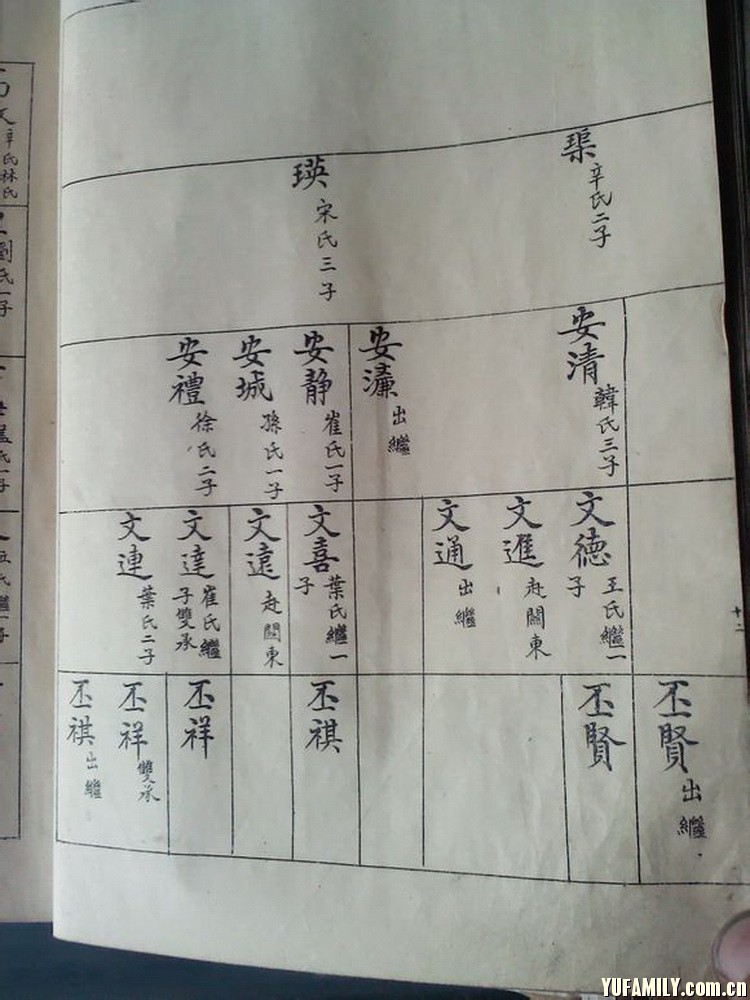 琹
辛氏二子
瑛
宋氏三子
安清
韓氏三子
安濂
出繼
安静
崔氏一子
安城
孫氏一子
安禮
徐氏二子
文德
王氏繼一子
文進
赴關東
文通
出繼
文喜
葉氏繼一子
文遠
赴關東
文達
崔氏繼子雙承
文連
葉氏二子
丕賢
出繼
丕賢
丕祺
丕祥
丕祥
雙承
丕祺
出繼
十二
文
辛氏林氏
劉氏一子
孟氏一子
氏繼一子
YUFAMILY.com.cn